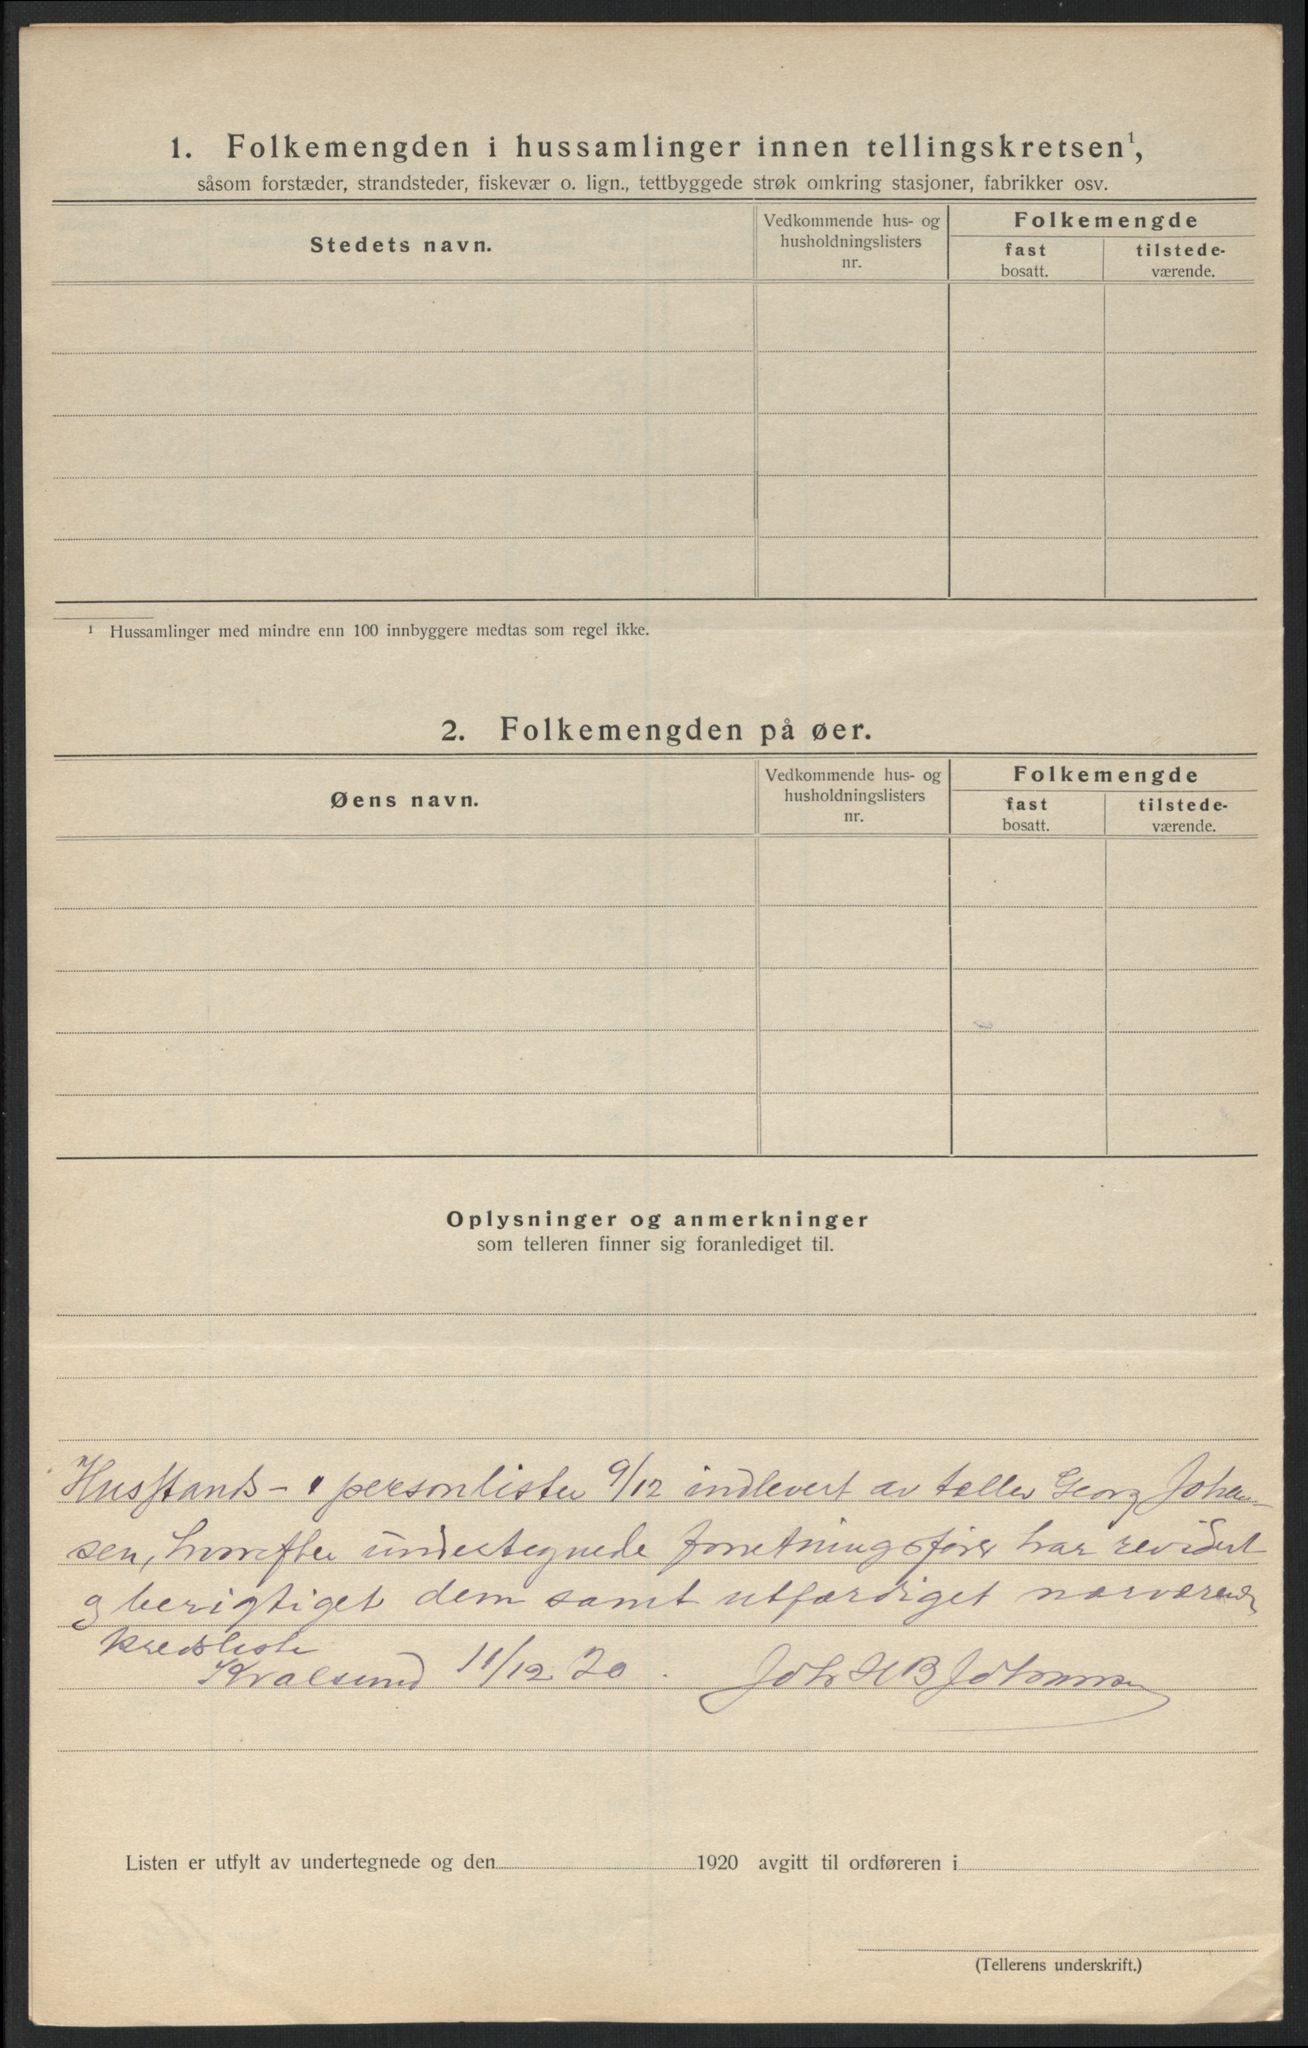 1. Folkemengden i hussamlinger innen tellingskretsen¹,
såsom forstæder, strandsteder, fiskevær o. lign., tettbyggede strøk omkring stasjoner, fabrikker osv.
Stedets navn.
Vedkommende hus- og
husholdningslisters
nr.
Folkemengde
fast
bosatt.
tilstede-
værende.
¹ Hussamlinger med mindre enn 100 innbyggere medtas som regel ikke.
2. Folkemengden på øer.
Øens navn.
Vedkommende hus- og
husholdningslisters
nr.
Folkemengde
fast
bosatt.
tilstede-
værende.
Oplysninger og anmerkninger
som telleren finner sig foranlediget til.
Husstands- personlister 9/12 indlevert av teller Georg Johan-
sen, hvorefter undertegnede forretningsfører har revidert
og berigtiget dem samt utfærdiget nærværende
kredsliste
Kvalsund 11/12 20. Joh HB Johannsen
Listen er utfylt av undertegnede og den 1920 avgitt til ordføreren i
(Tellerens underskrift.)